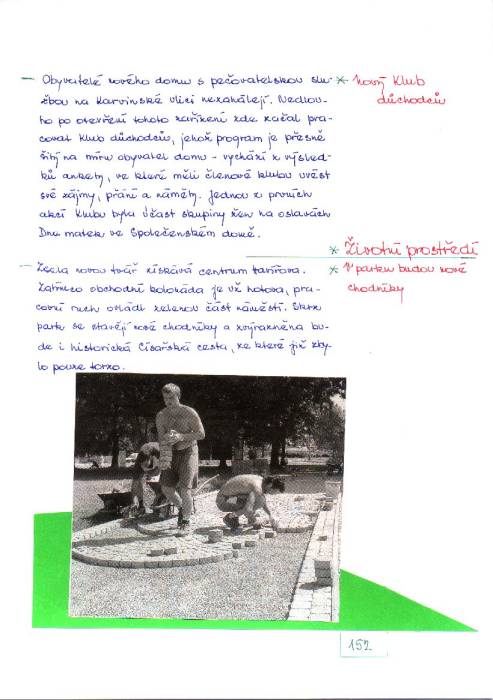 Obyvatelé nového domu s pečovatelskou slu-
žbou na Karvinské ulici nezahálejí. Nedlou-
ho po otevření tohoto zařízení zde začal pra-
covat Klub důchodců, jehož program je přesně
šitý na míru obyvatel domu - vychází z výsled-
ků ankety, ve které měli členové klubu uvést
své zájmy, přání a náměty. Jednou z prvních
akcí Klubu byla účast skupiny žen na oslavách
Dnu matek ve Společenském domě.
* Nový Klub
důchodců
* Životní prostředí
Zcela novou tvář získává centrum
Zatímco obchodní kolonáda je už hotova, pra-
covní ruch ovládl zelenou část náměstí. Skrz
park se stavějí nové chodníky a zvýrazněna bu-
de i historická Císařská cesta, ze které již zby-
lo pouze torzo.
* V parku budou nové
chodníky
152